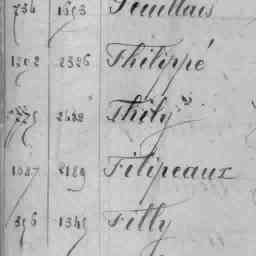 734 1653 Feuillais
1202 2326 Philippé
2489 Phily
1087 2189 Filipeaux
396 1345 Filly